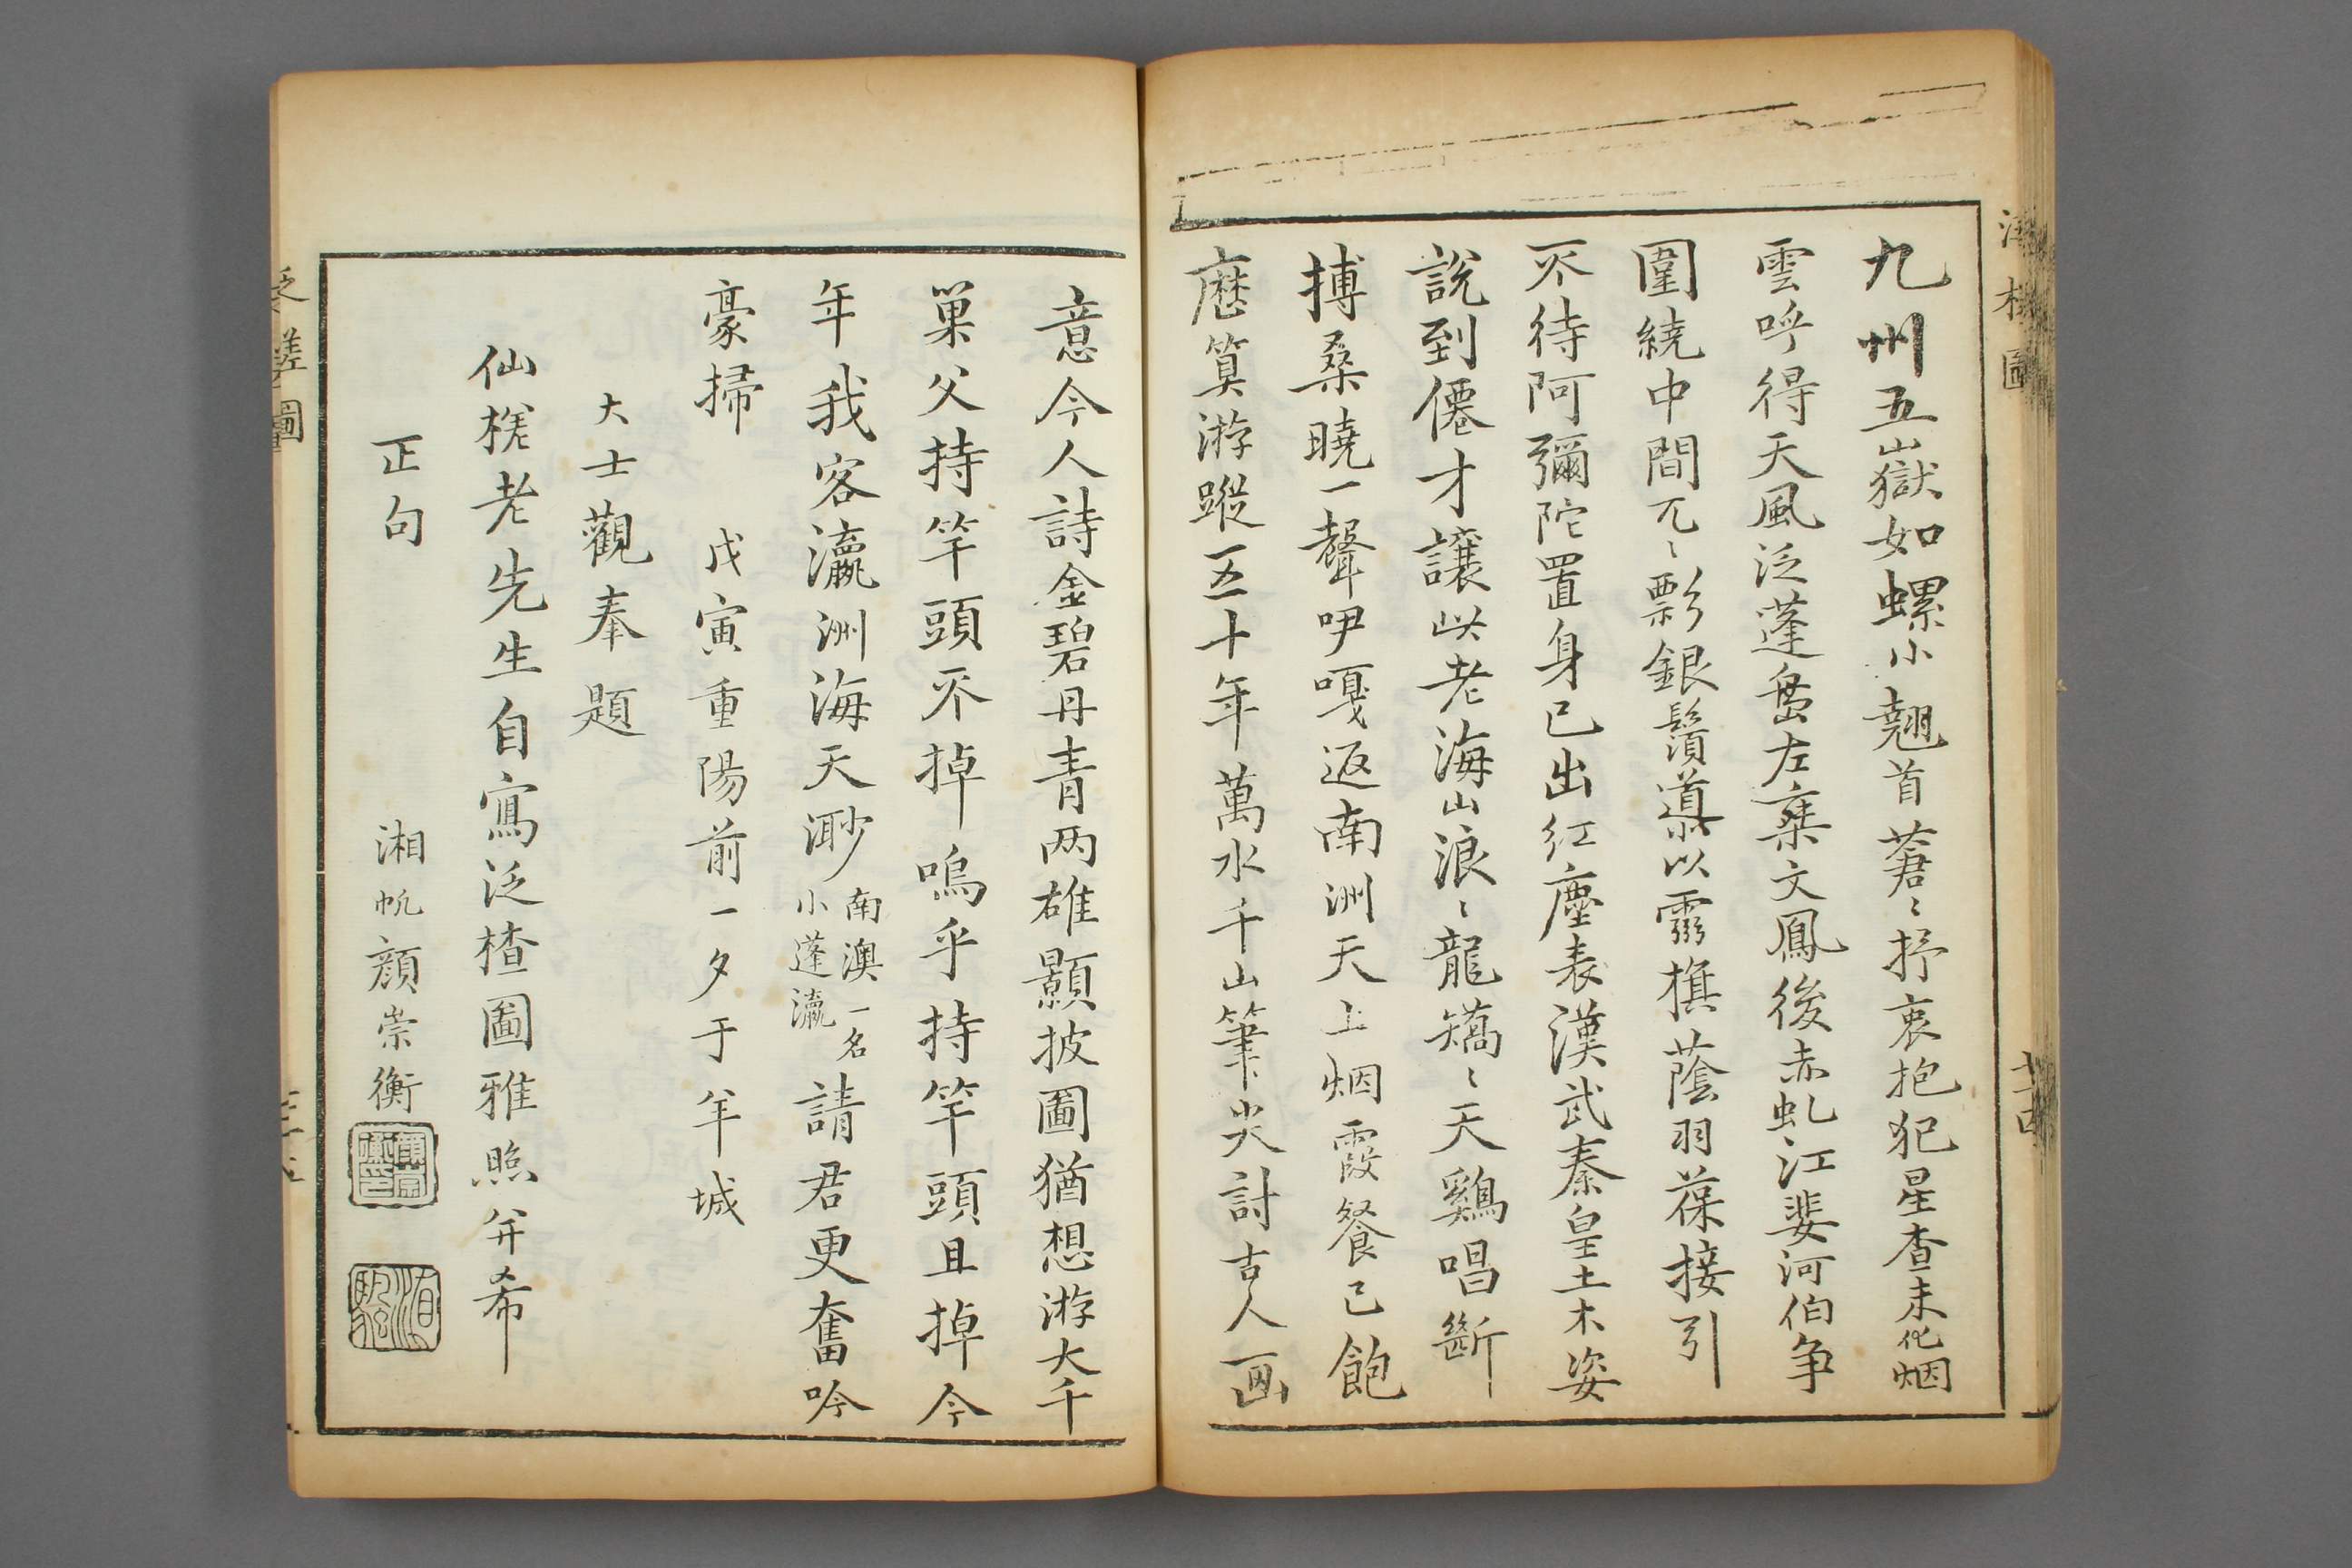 九州五嶽如螺小翹首蒼〻抒衷抱犯星查未化烟
雲呼得天風泛蓬島左乘文鳳後赤虬江婓河伯爭
圍繞中間兀〻影銀鬚導以霛旗蔭羽葆接引
不待阿彌陀置身已出紅塵表漢武秦皇土木姿
說到僊才讓此老海山浪〻龍矯〻天鷄唱斷
搏桑曉一聲咿嘎返南洲天上烟霞餐已飽
歷算游蹤五十年萬水千山筆尖討古人画
意今人詩金碧丹青两雄顥披圖猶想游大千
巢父持竿頭不掉嗚乎持竿頭且掉今
年我客瀛洲海天渺
南澳一名
小蓬瀛
請君更奮吟
豪掃 戊寅重陽前一夕于羊城
大士觀奉題
仙槎老先生自寫泛楂圖雅照并希
正句 湘帆顏崇衡
顏崇衡印
泛槎圖